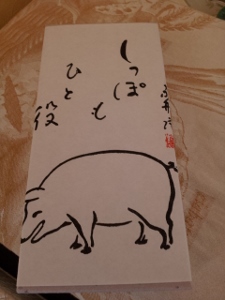 しっぽ
も
ひと
役